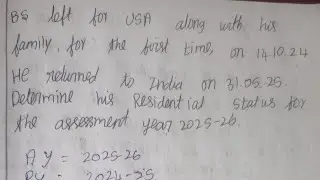 BS left for USA along with his
family, for the first time, on 14.10.24
He returned to India on 31.05.25.
Determine his Residential status for
the assessment year 2025-26.
A Y = 2025-26
PY = 2024-25